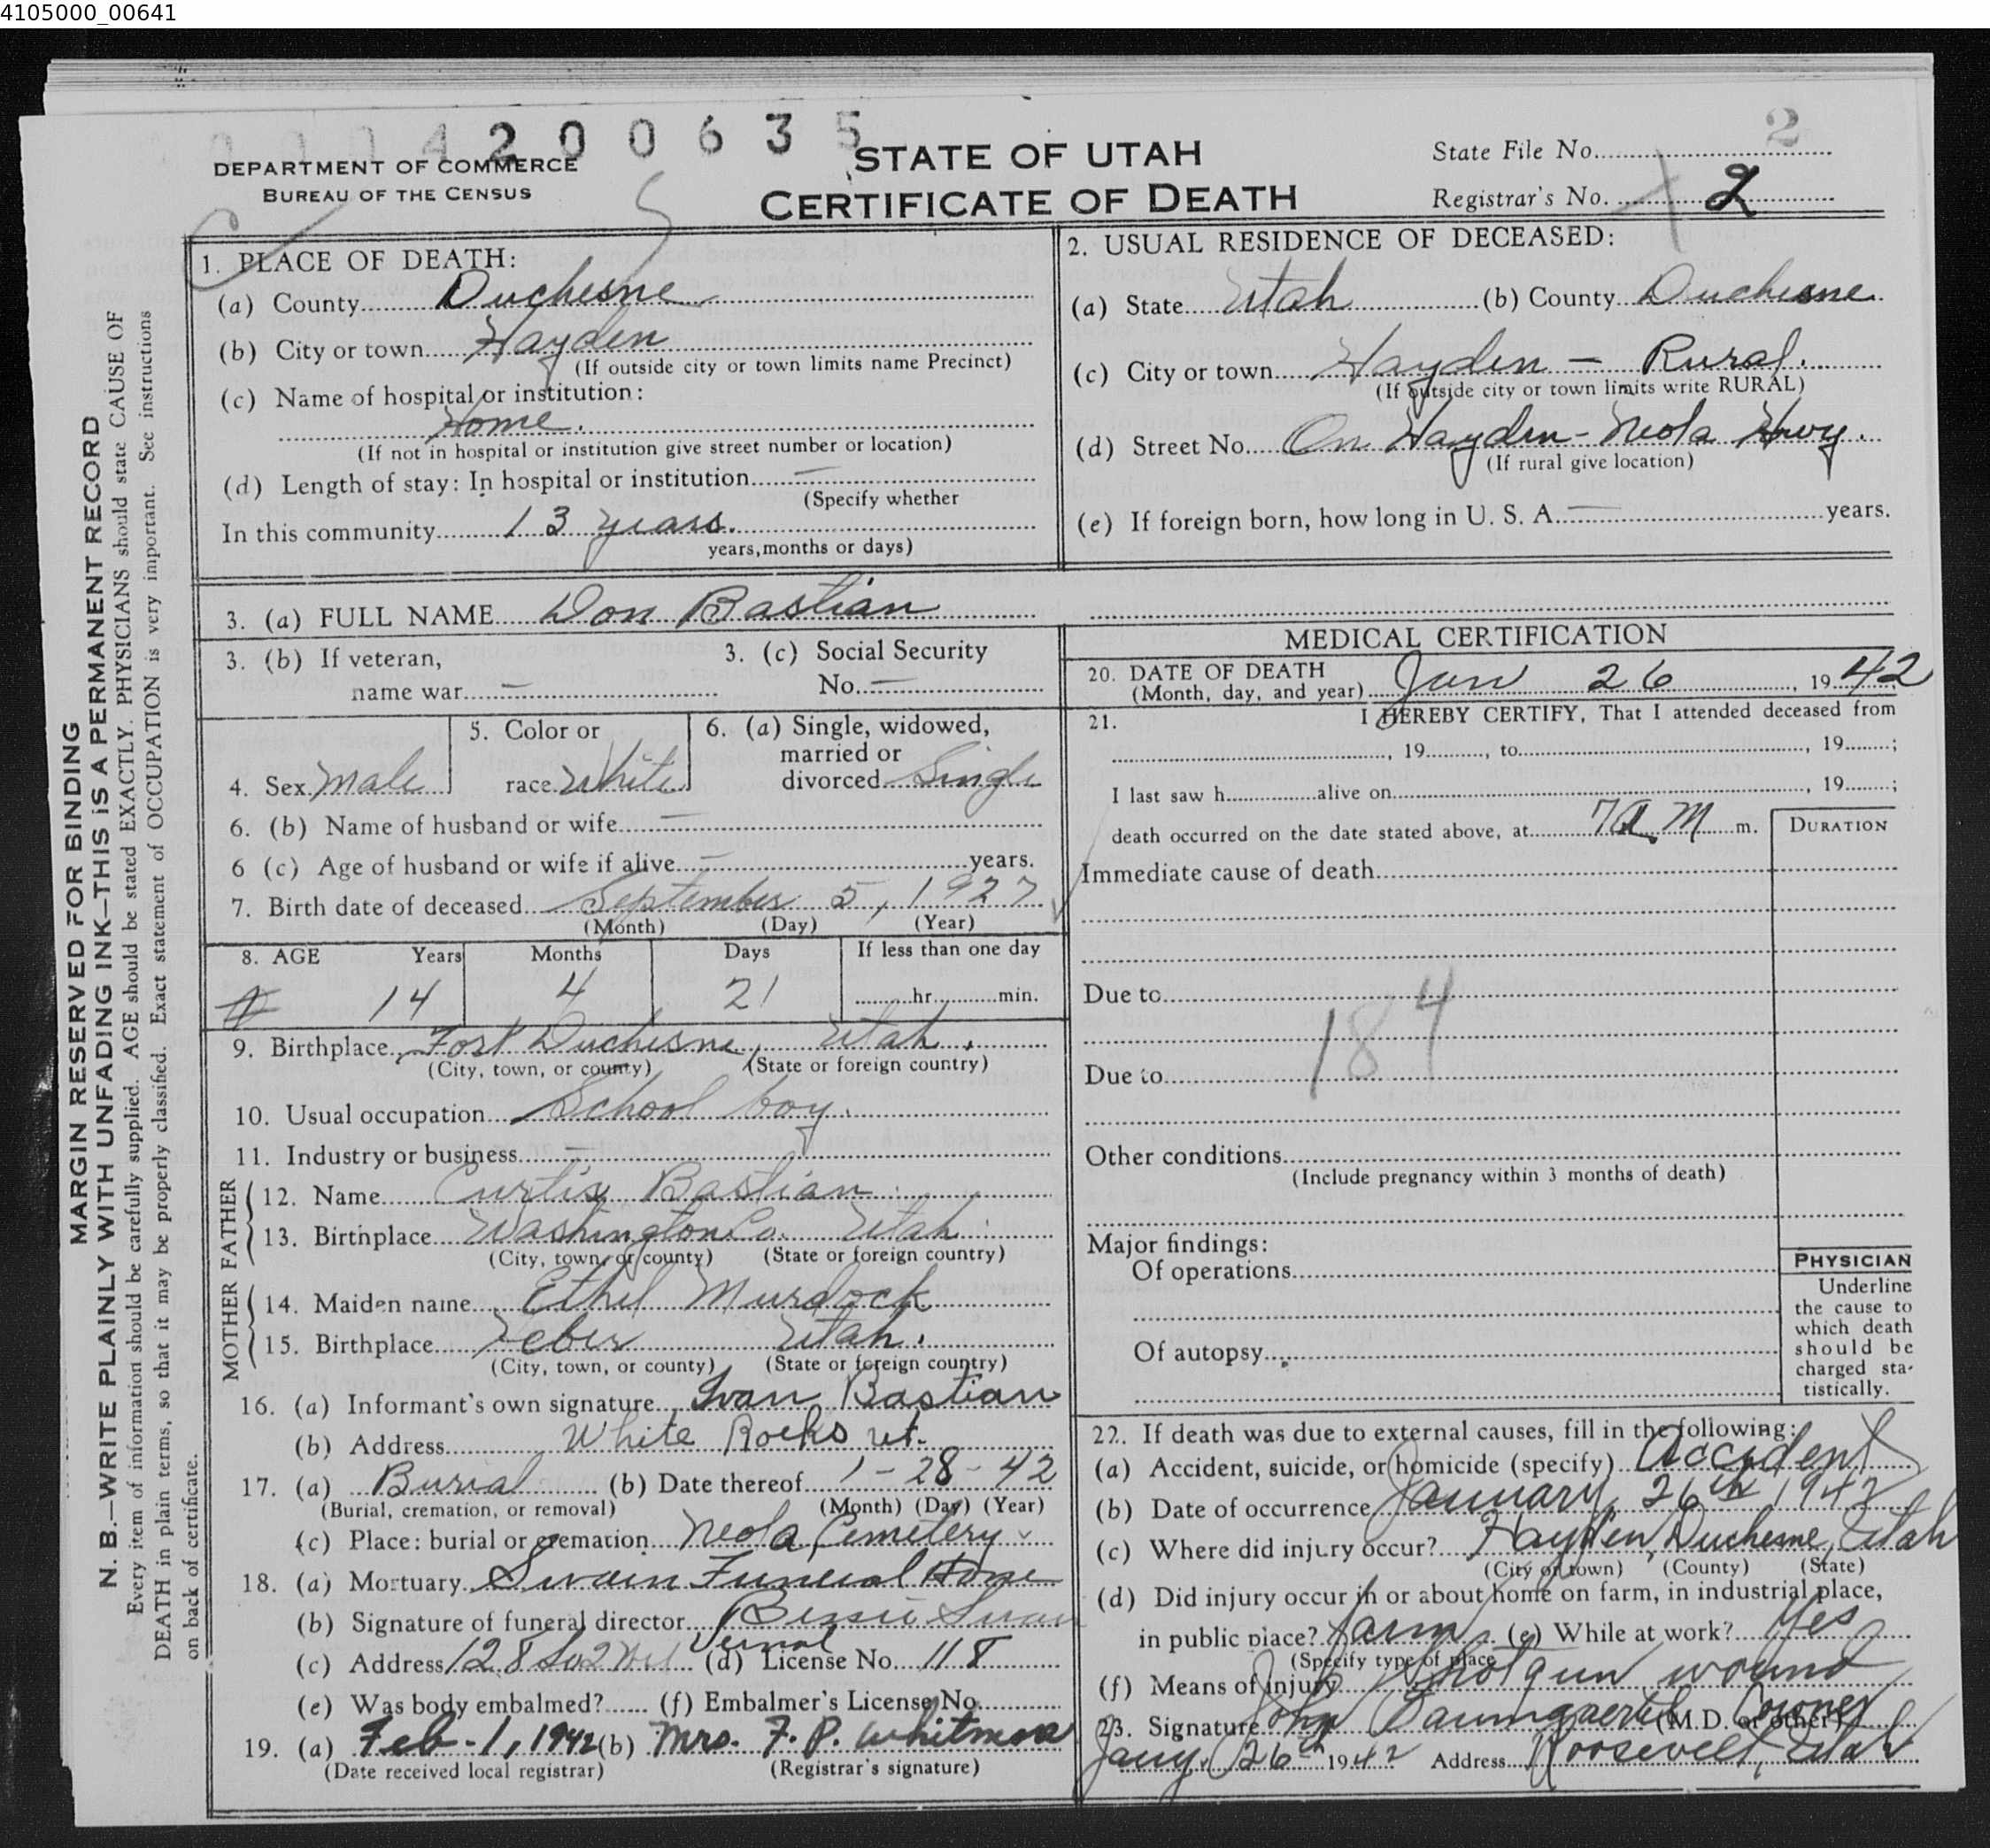 4105000_00641
4 2 0 0 6 3 5
2
DEPARTMENT OF COMMERCE
BUREAU OF THE CENSUS
STATE OF UTAH
CERTIFICATE OF DEATH
State File No.
Registrar's No. 2
MARGIN RESERVED FOR BINDING
N. B.—WRITE PLAINLY WITH UNFADING INK—THIS IS A PERMANENT RECORD
Every item of information should be carefully supplied. AGE should be stated EXACTLY. PHYSICIANS should state CAUSE OF
DEATH in plain terms, so that it may be properly classified. Exact statement of OCCUPATION is very important. See instructions
on back of certificate.
1. PLACE OF DEATH:
(a) County Duchesne
(b) City or town Hayden
(If outside city or town limits name Precinct)
(c) Name of hospital or institution:
Home.
(If not in hospital or institution give street number or location)
(d) Length of stay: In hospital or institution —
(Specify whether
In this community 13 years.
years, months or days)
2. USUAL RESIDENCE OF DECEASED:
(a) State Utah (b) County Duchesne
(c) City or town Hayden — Rural.
(If outside city or town limits write RURAL)
(d) Street No. On Hayden-Neola Hwy.
(If rural give location)
(e) If foreign born, how long in U. S. A. — years.
3. (a) FULL NAME Don Bastian
3. (b) If veteran,
name war —
3. (c) Social Security
No. —
4. Sex Male
5. Color or
race White
6. (a) Single, widowed,
married or
divorced Single
6. (b) Name of husband or wife —
6 (c) Age of husband or wife if alive — years.
7. Birth date of deceased September 5, 1927
(Month) (Day) (Year)
8. AGE Years Months Days If less than one day
14 4 21 hr. min.
9. Birthplace Fort Duchesne, Utah.
(City, town, or county) (State or foreign country)
10. Usual occupation School boy.
11. Industry or business —
FATHER
12. Name Curtis Bastian
13. Birthplace Washington Co. Utah
(City, town, or county) (State or foreign country)
MOTHER
14. Maiden name Ethel Murdock
15. Birthplace Heber Utah.
(City, town, or county) (State or foreign country)
16. (a) Informant's own signature Ivan Bastian
(b) Address White Rocks ut.
17. (a) Burial (b) Date thereof 1-28-42
(Burial, cremation, or removal) (Month) (Day) (Year)
(c) Place: burial or cremation Neola Cemetery
18. (a) Mortuary Swain Funeral Home
(b) Signature of funeral director Bessie Swain
(c) Address 128 So 2 Vernal (d) License No. 118
(e) Was body embalmed? (f) Embalmer's License No.
19. (a) Feb-1, 1942 (b) Mrs. F. P. Whitmore
(Date received local registrar) (Registrar's signature)
MEDICAL CERTIFICATION
20. DATE OF DEATH
(Month, day, and year) Jan 26, 1942
21. I HEREBY CERTIFY, That I attended deceased from
, 19 , to , 19 ;
I last saw h alive on , 19 ;
death occurred on the date stated above, at 7 A M m.
DURATION
Immediate cause of death
Due to
184
Due to
Other conditions
(Include pregnancy within 3 months of death)
Major findings:
Of operations
Of autopsy
PHYSICIAN
Underline
the cause to
which death
should be
charged sta-
tistically.
22. If death was due to external causes, fill in the following:
(a) Accident, suicide, or homicide (specify) Accident
(b) Date of occurrence January 26th 1942
(c) Where did injury occur? Hayden, Duchesne, Utah
(City or town) (County) (State)
(d) Did injury occur in or about home on farm, in industrial place,
in public place? Farm (e) While at work? Yes
(Specify type of place
(f) Means of injury Shotgun wound
23. Signature John Baumgaertel Coroner (M.D. or other)
Jany. 26th 1942 Address Roosevelt, Utah